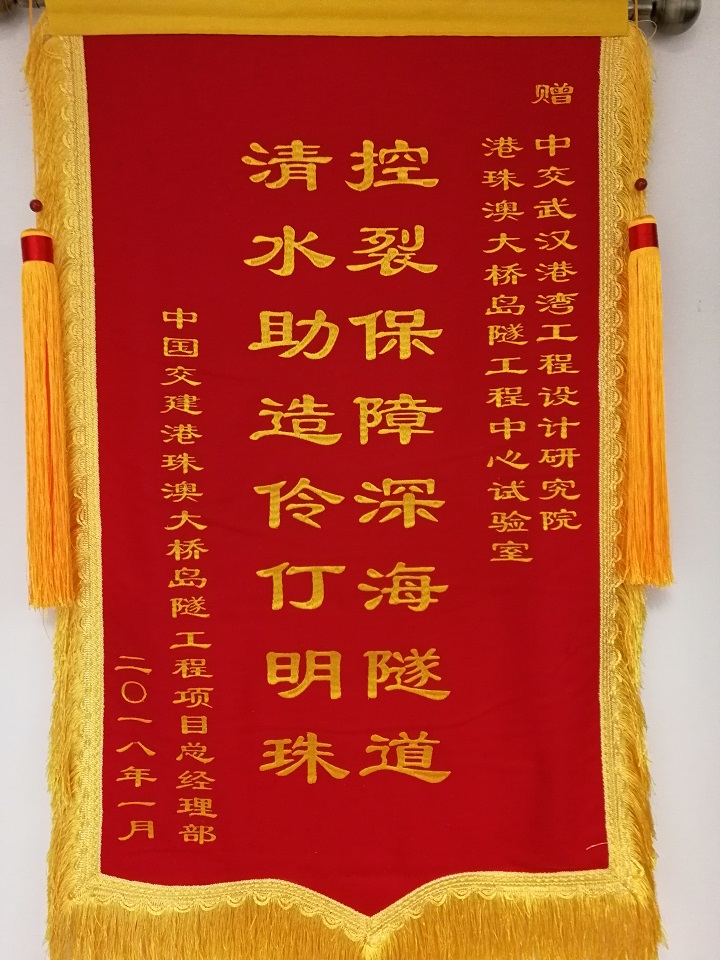 赠
中交武汉港湾工程设计研究院
港珠澳大桥岛隧工程中心试验室
控裂保障深海隧道
清水助造伶仃明珠
中国交建港珠澳大桥岛隧工程项目总经理部
二〇一八年一月